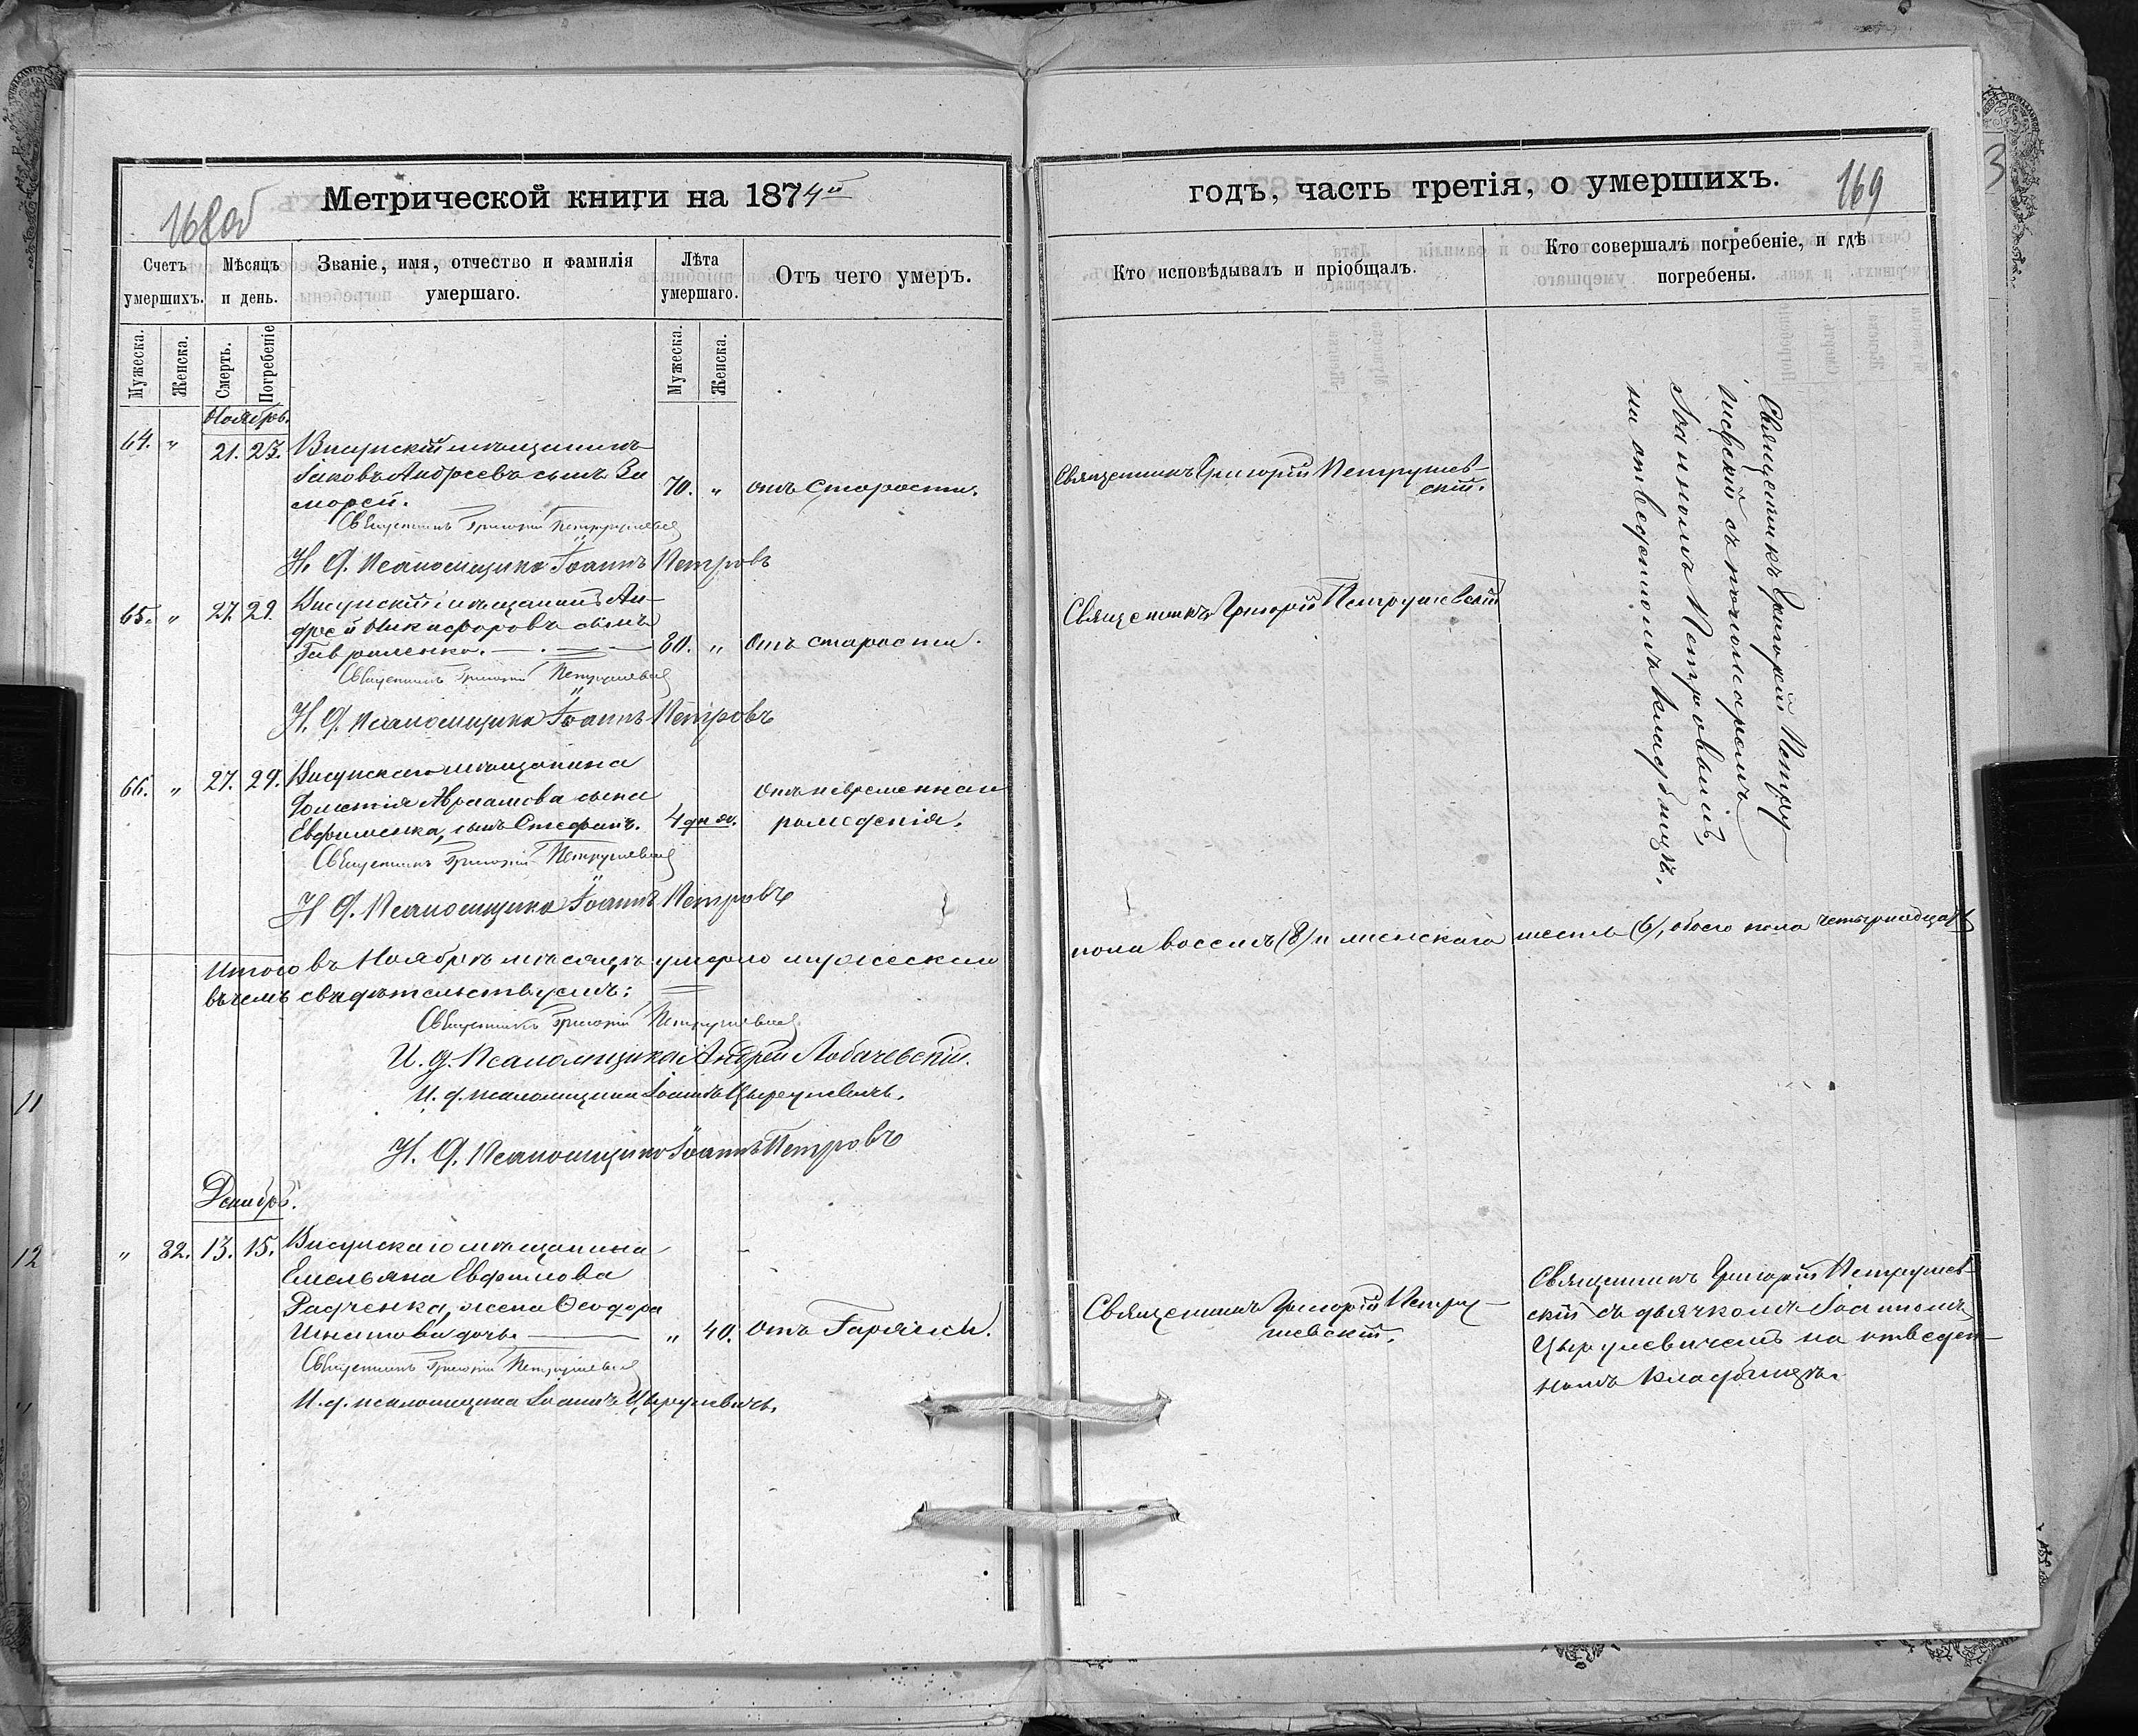 168об
Метрической книги на 1874й
Счетъ умершихъ.
Мѣсяцъ и день.
Званіе, имя, отчество и фамилія умершаго.
Лѣта умершаго.
Отъ чего умеръ.
Мужеска.
Женска.
Смерть.
Погребеніе
Мужеска.
Женска.
Ноябрь.
64. " 21. 23. Висунскій мѣщанинъ
Іаковъ Андреевъ сынъ За
морей. 70. " отъ старости.
Священникъ Григорій Петрушевскій
И. д. Псаломщика Іоаннъ Петровъ
65. " 27. 29. Висунскій мѣщанинъ Ан-
дрей Никифоровъ сынъ
Гавриленко. 80. " отъ старости.
Священникъ Григорій Петрушевскій
И. д. Псаломщика Іоаннъ Петровъ
66. " 27. 29. Висунскаго мѣщанина
Авраамова сына отъ невременнаго
Евфименка, сынъ Стефанъ. 4 дня. рожденія.
Священникъ Григорій Петрушевскій
И. д. Псаломщика Іоаннъ Петровъ
Итого въ Ноябрѣ мѣсяцѣ умерло мужескаго
въ чемъ свидѣтельствуемъ:
Священникъ Григорій Петрушевскій
И. д. Псаломщика Андрей Лобачевскій.
И. д. псаломщика Іоаннъ Цырулевичъ.
И. д. Псаломщика Іоаннъ Петровъ
Декабрь.
" 82. 13. 15. Висунскаго мѣщанина
Емельяна Евфимова
Радченка, жена Ѳеодора
Игнатова дочь " 40. отъ Горячки.
Священникъ Григорій Петрушевскій
И. д. псаломщика Іоаннъ Цырулевичъ.
годъ, часть третія, о умершихъ.
169
3
Кто исповѣдывалъ и пріобщалъ.
Кто совершалъ погребеніе, и гдѣ
погребены.
Священникъ Григорій Петрушев-
скій.
Священникъ Григорій Петрушевскій
Священникъ Григорій Петру
шевскій съ пономаремъ
Іоанномъ Петровымъ,
на отведенномъ кладбищѣ.
пола восемь (8) и женскаго шесть (6), обоего пола четырнадцать
Священникъ Григорій Петру-
шевскій.
Священникъ Григорій Петрушев-
скій съ дьячкомъ Іоанномъ
Цырулевичемъ на отведен-
номъ кладбищѣ.
11
12